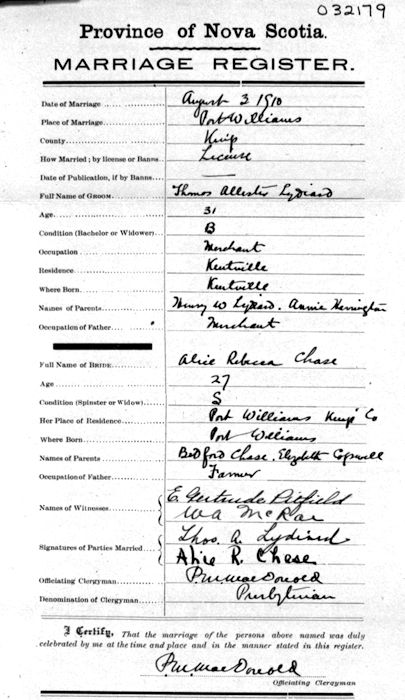 032179
Province of Nova Scotia.
MARRIAGE REGISTER.
Date of Marriage August 3 1910
Place of Marriage Port Williams
County Kings
How Married; by license or Banns License
Date of Publication, if by Banns
Full Name of GROOM Thomas Allister Lydiard
Age 31
Condition (Bachelor or Widower) B
Occupation Merchant
Residence Kentville
Where Born Kentville
Names of Parents Henry W Lydiard. Annie Harrington
Occupation of Father Merchant
Full Name of BRIDE Alice Rebecca Chase
Age 27
Condition (Spinster or Widow) S
Her Place of Residence Port Williams Kings Co
Where Born Port Williams
Names of Parents Bedford Chase. Elizabeth Cogswell
Occupation of Father Farmer
Names of Witnesses E. Gertrude Pitfield
W A McRae
Signatures of Parties Married Thos. A. Lydiard
Alice R. Chase
Officiating Clergyman
Denomination of Clergyman Presbyterian
I Certify, That the marriage of the persons above named was duly
celebrated by me at the time and place and in the manner stated in this register.
Officiating Clergyman